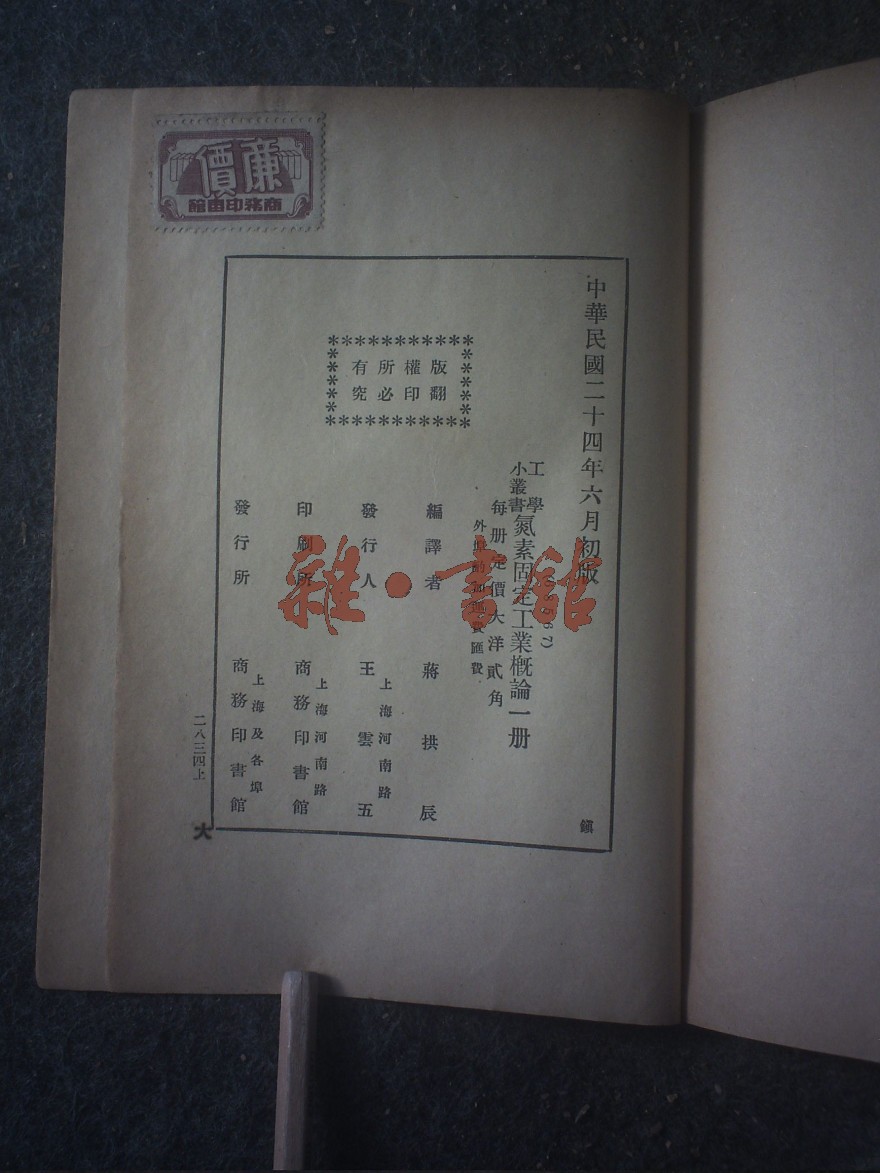 廉價
商務印書館
中華民國二十四年六月初版
鎭
工學
小叢書
氮素固定工業概論一册
每册定價大洋貳角
外埠酌加運費匯費
版權所有
翻印必究
編譯者
蔣拱辰
發行人
王雲五
上海河南路
印刷所
商務印書館
上海河南路
發行所
商務印書館
上海及各埠
二八三四上
大
雜·書館